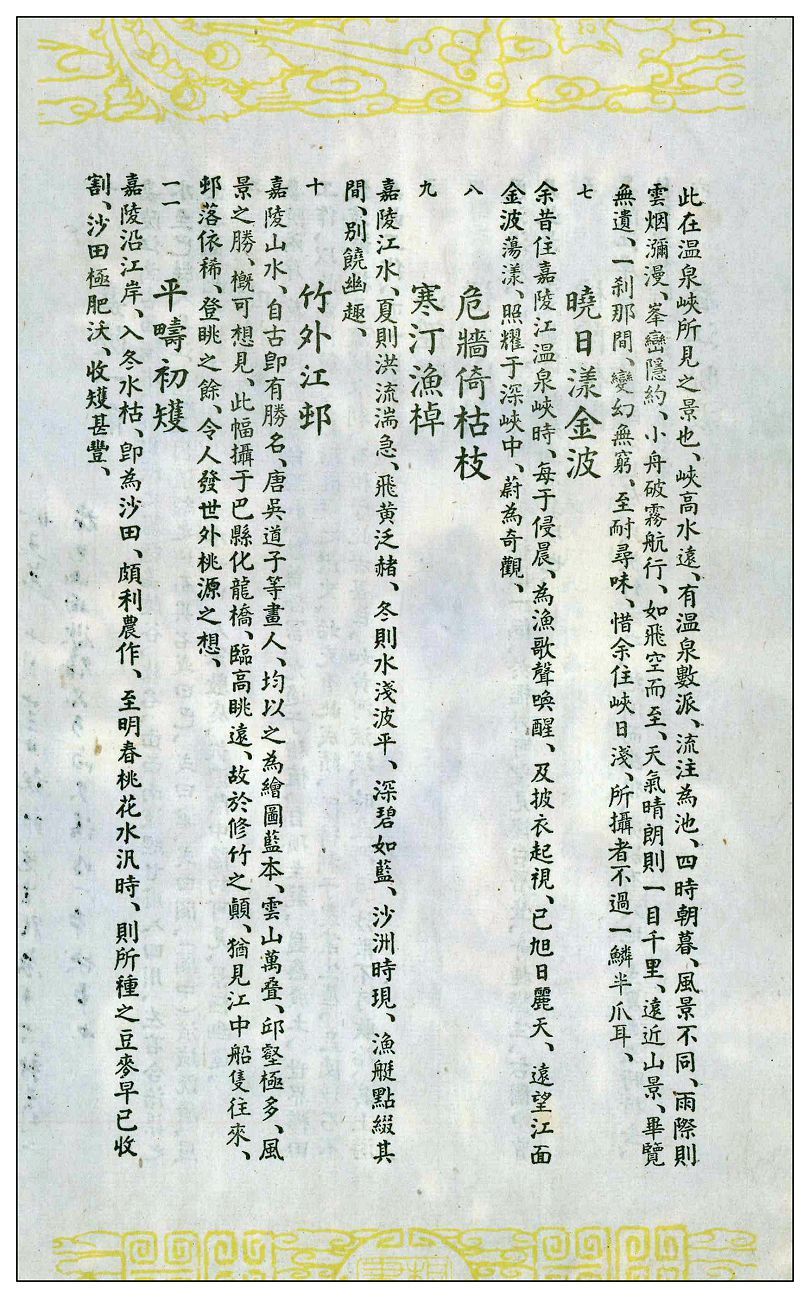 此在溫泉峽所見之景也、峽高水遠、有溫泉數派、流注為池、四時朝暮、風景不同、雨際則
雲烟瀰漫、峯巒隱約、小舟破霧航行、如飛空而至、天氣晴朗則一目千里、遠近山景、畢覽
無遺、一刹那間、變幻無窮、至耐尋味、惜余住峽日淺、所攝者不過一鱗半爪耳、
七 曉日漾金波
余昔住嘉陵江溫泉峽時、每于侵晨、為漁歌聲喚醒、及披衣起視、已旭日麗天、遠望江面
金波蕩漾、照耀于深峽中、蔚為奇觀、
八 危牆倚枯枝
九 寒汀漁棹
嘉陵江水、夏則洪流湍急、飛黄泛赭、冬則水淺波平、深碧如藍、沙洲時現、漁艇點綴其
間、別饒幽趣、
十 竹外江邨
嘉陵山水、自古卽有勝名、唐吳道子等畫人、均以之為繪圖藍本、雲山萬叠、邱壑極多、風
景之勝、概可想見、此幅攝于巴縣化龍橋、臨高眺遠、故於修竹之顛、猶見江中船隻往來、
邨落依稀、登眺之餘、令人發世外桃源之想、
一一 平疇初穫
嘉陵沿江岸、入冬水枯、卽為沙田、頗利農作、至明春桃花水汎時、則所種之豆麥早已收
割、沙田極肥沃、收穫甚豐、